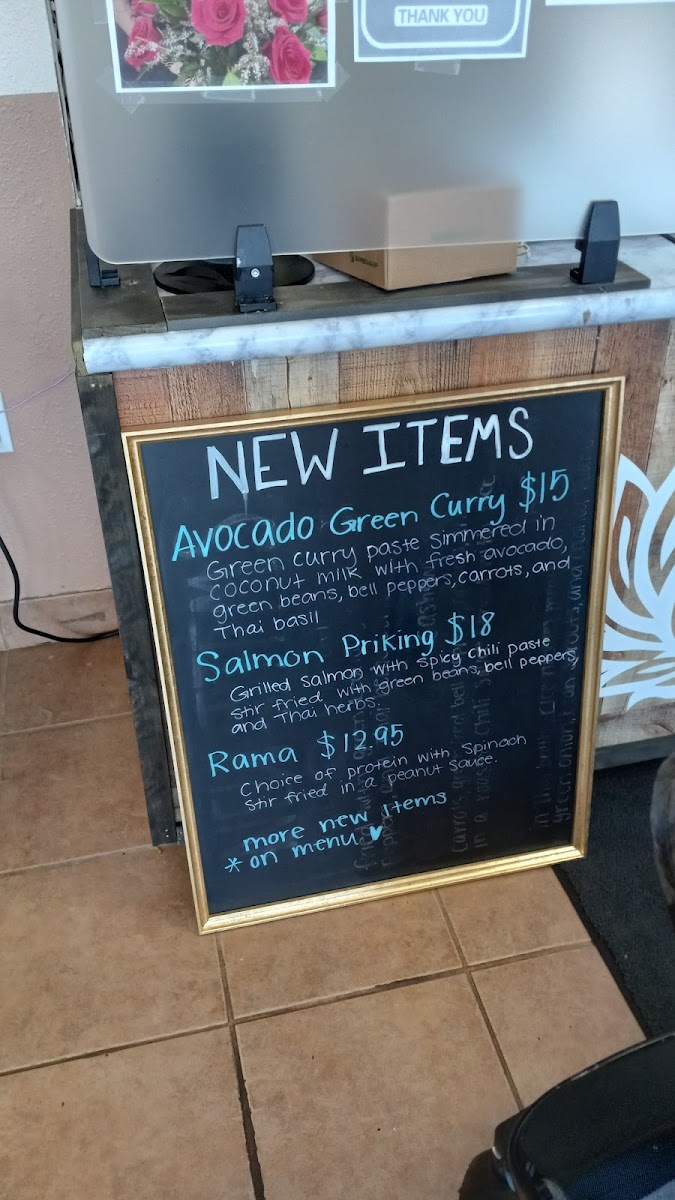 THANK YOU
NEW ITEMS
Avocado Green Curry $15
Green curry paste simmered in
coconut milk with fresh avocado,
green beans, bell peppers, carrots, and
Thai basil
Salmon Priking $18
Grilled salmon with spicy chili paste
stir fried with green beans, bell peppers,
and Thai herbs.
Rama $12.95
Choice of protein with Spinach
stir fried in a peanut sauce.
more new items
* on menu